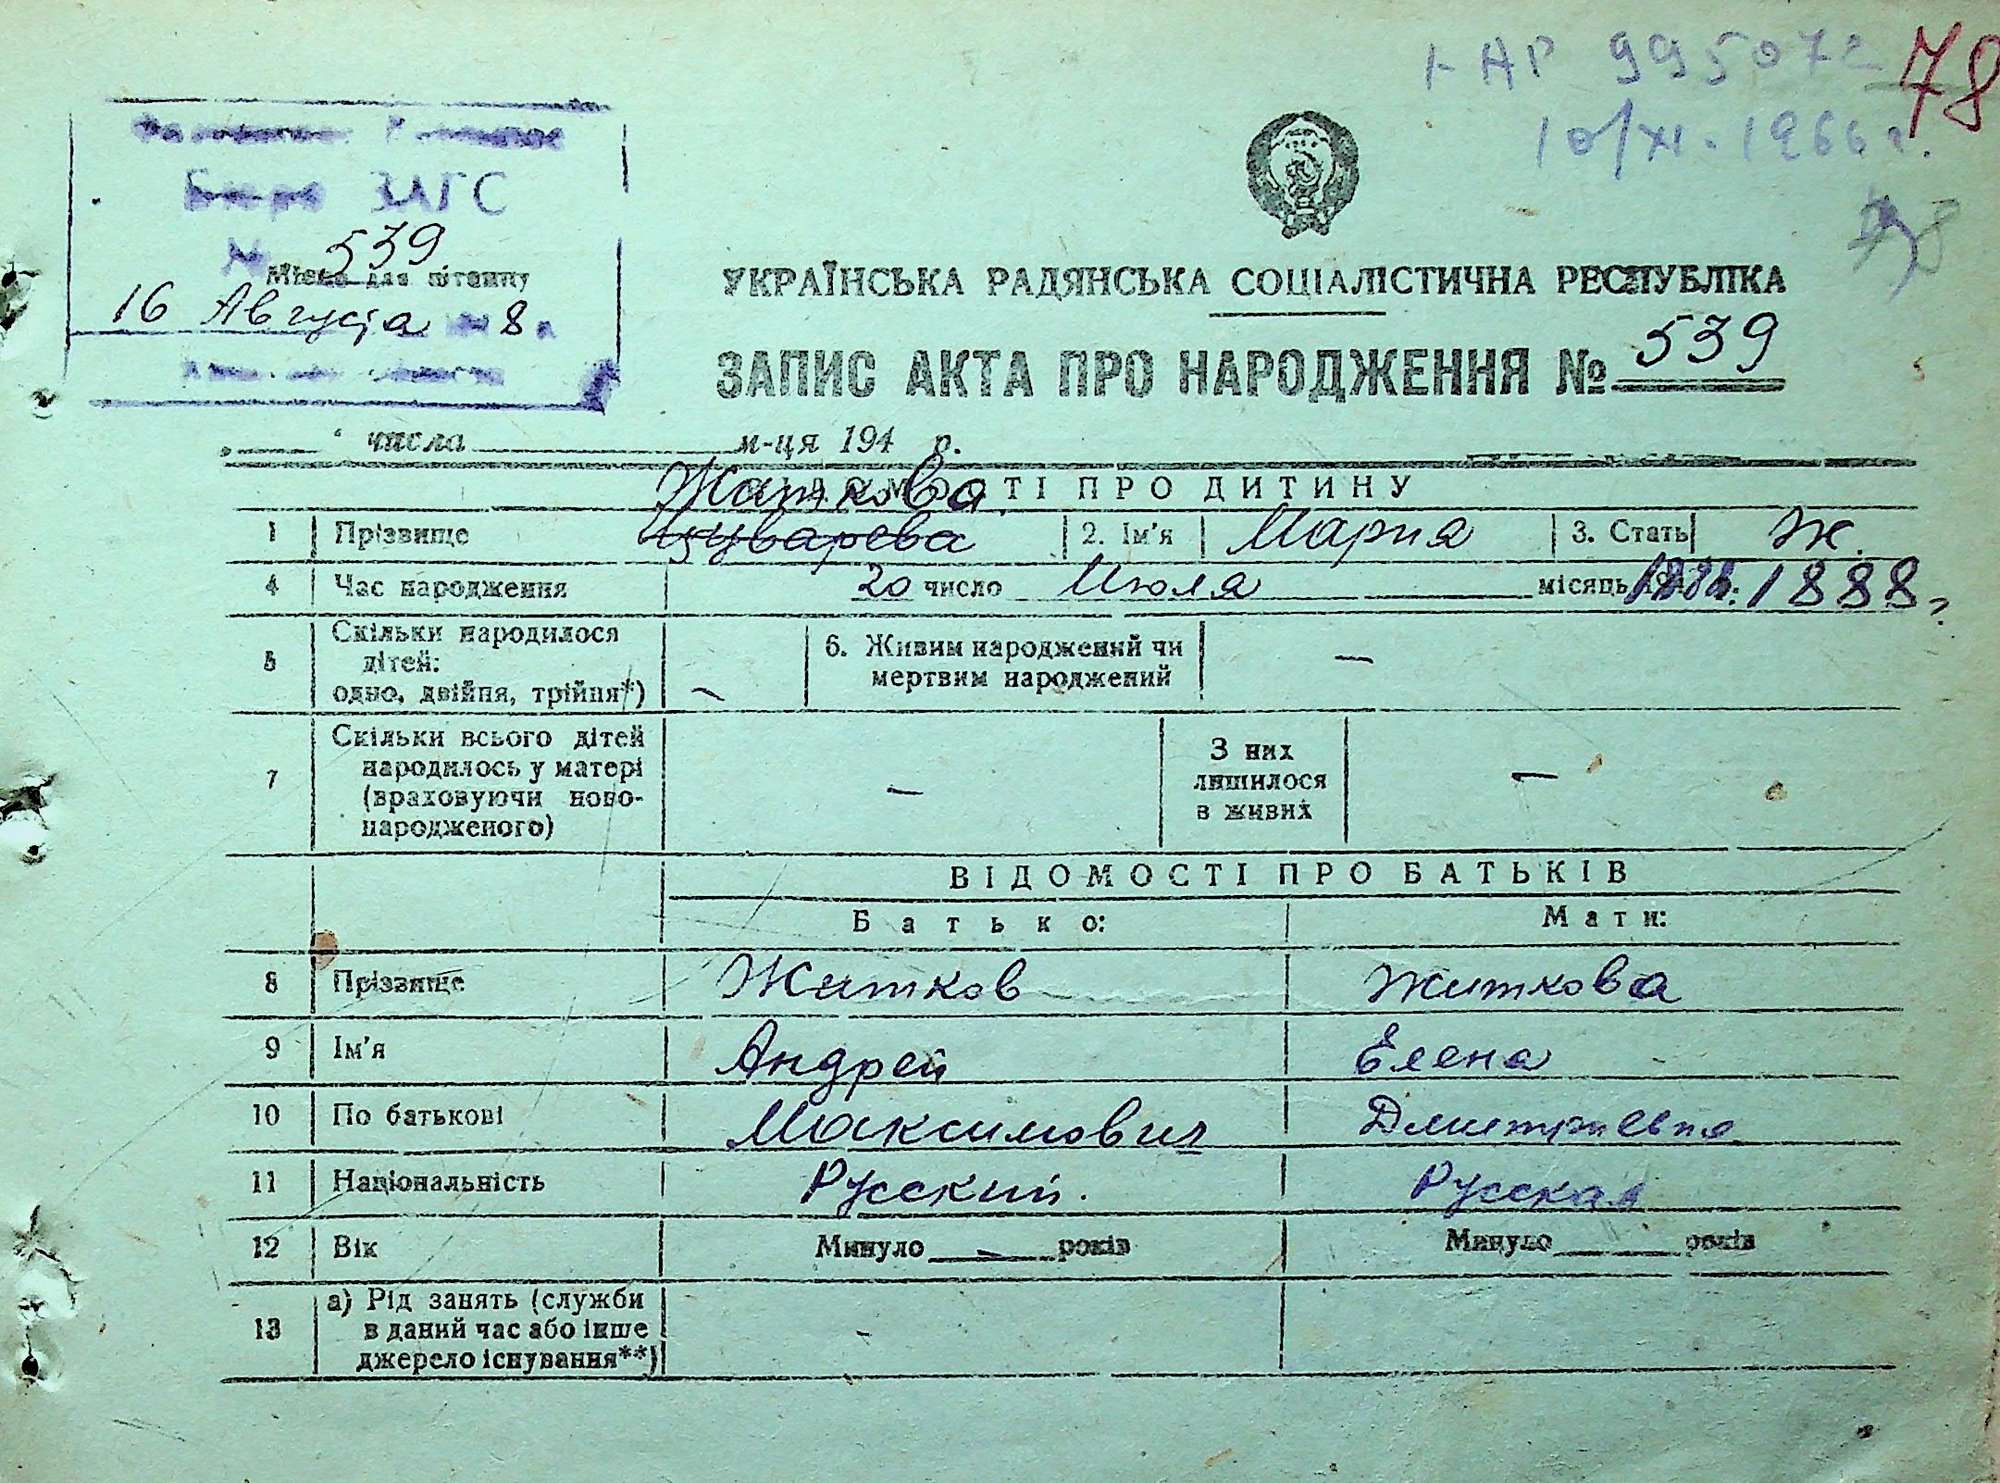 ГАР 995072 78
10/XI.1966 г.
Бюро ЗАГС
№ 539
Місце для штампу
16 Августа 8 г.
УКРАЇНСЬКА РАДЯНСЬКА СОЦІАЛІСТИЧНА РЕСПУБЛІКА
ЗАПИС АКТА ПРО НАРОДЖЕННЯ № 539
числа м-ця 194 р.
ВІДОМОСТІ ПРО ДИТИНУ
Житкова
1 Прізвище Шуварева 2. Ім'я Мария 3. Стать Ж.
4 Час народження 20 число Июля місяць 1888 г.
5 Скільки народилося дітей: одно, двійня, трійня*) – 6. Живим народжений чи мертвим народжений –
7 Скільки всього дітей народилось у матері (враховуючи новонародженого) – З них лишилося в живих –
ВІДОМОСТІ ПРО БАТЬКІВ
Батько: Мати:
8 Прізвище Житков Житкова
9 Ім'я Андрей Елена
10 По батькові Максимович Дмитриевна
11 Національність Русский. Русская
12 Вік Минуло – років Минуло років
13 а) Рід занять (служби в даний час або інше джерело існування**) -